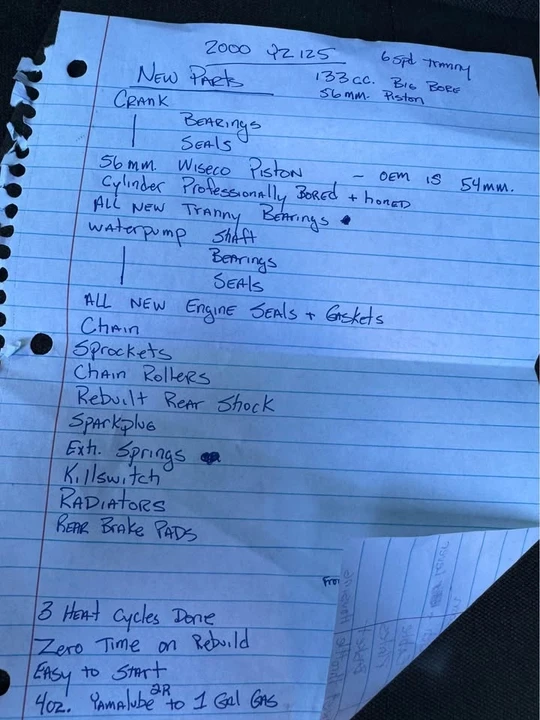 2000 YZ 125
6 spd Tranny
NEW PARTS
133 c.c. BIG BORE
56mm. Piston
CRANK
BEARINGS
SEALS
56 mm. Wiseco PISTON - OEM IS 54mm.
Cylinder Professionally BORED + honED
ALL New TRANNY BEARINGS
WATERPUMP Shaft
BEARINGS
SEALS
ALL NEW ENGINE SEALS + GASKETS
Chain
Sprockets
Chain Rollers
Rebuilt Rear Shock
Sparkplug
Exh. Springs
Killswitch
RADIATORS
REAR Brake PADS
3 HEAT Cycles Done
Zero Time on Rebuild
EASY to START
4oz. YAMALUBE 2R to 1 Gal GAS